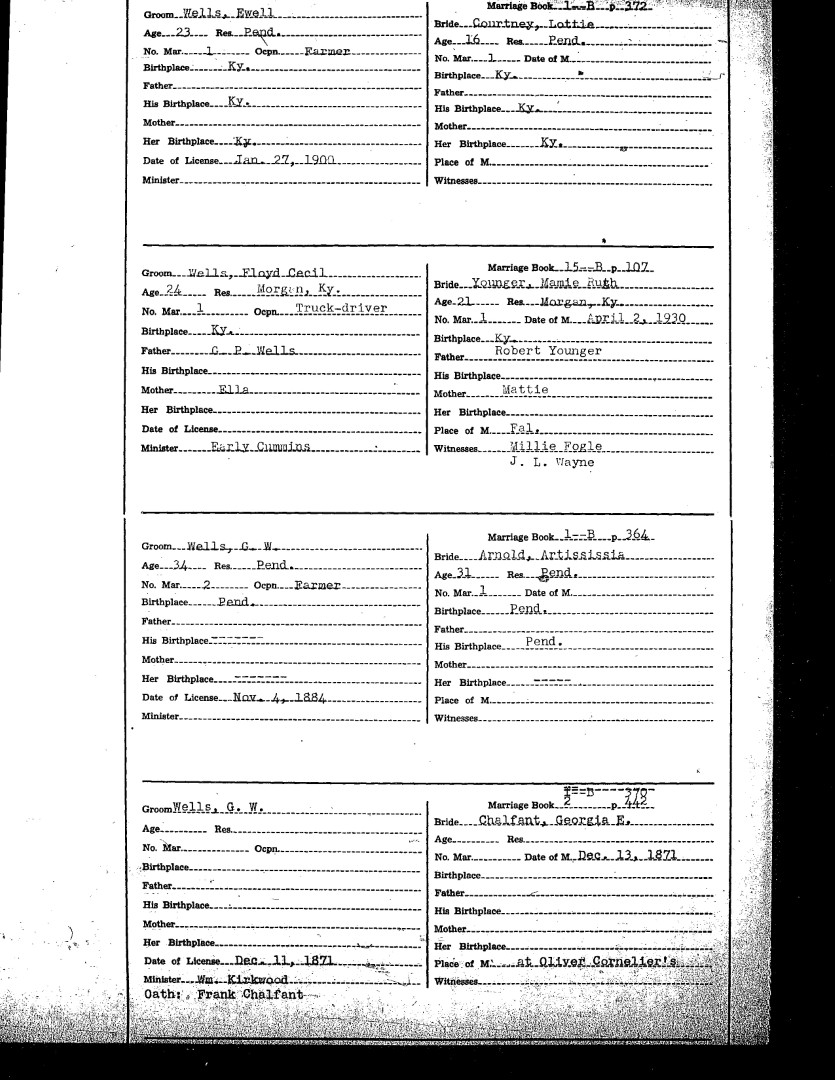 Groom Wells, Ewell
Age 23 Res. Pend.
No. Mar. 1 Ocpn. Farmer
Birthplace Ky.
Father
His Birthplace Ky.
Mother
Her Birthplace Ky.
Date of License Jan. 27, 1900
Minister
Marriage Book 1--B p. 372
Bride Courtney, Lottie
Age 16 Res. Pend.
No. Mar. 1 Date of M.
Birthplace Ky.
Father
His Birthplace Ky.
Mother
Her Birthplace Ky.
Place of M.
Witnesses
Groom Wells, Floyd Cecil
Age 24 Res. Morgan, Ky.
No. Mar. 1 Ocpn. Truck-driver
Birthplace Ky.
Father G. P. Wells
His Birthplace
Mother Ella
Her Birthplace
Date of License
Minister Early Cummins
Marriage Book 15--B p. 107
Bride Younger, Mamie Ruth
Age 21 Res. Morgan, Ky.
No. Mar. 1 Date of M. April 2, 1930
Birthplace Ky.
Father Robert Younger
His Birthplace
Mother Mattie
Her Birthplace
Place of M. Fal.
Witnesses Millie Fogle
J. L. Wayne
Groom Wells, G. W.
Age 34 Res. Pend.
No. Mar. 2 Ocpn. Farmer
Birthplace Pend.
Father
His Birthplace -------
Mother
Her Birthplace -------
Date of License Nov. 4, 1884
Minister
Marriage Book 1--B p. 364
Bride Arnold, Artississia
Age 31 Res. Pend.
No. Mar. 1 Date of M.
Birthplace Pend.
Father
His Birthplace Pend.
Mother
Her Birthplace -----
Place of M.
Witnesses
Groom Wells, G. W.
Age Res.
No. Mar. Ocpn.
Birthplace
Father
His Birthplace
Mother
Her Birthplace
Date of License Dec. 11, 1871
Minister Wm. Kirkwood
Oath: Frank Chalfant
Marriage Book 2 p. 442
Bride Chalfant, Georgia E.
Age Res.
No. Mar. Date of M. Dec. 13, 1871
Birthplace
Father
His Birthplace
Mother
Her Birthplace
Place of M. at Oliver Cornelier's
Witnesses